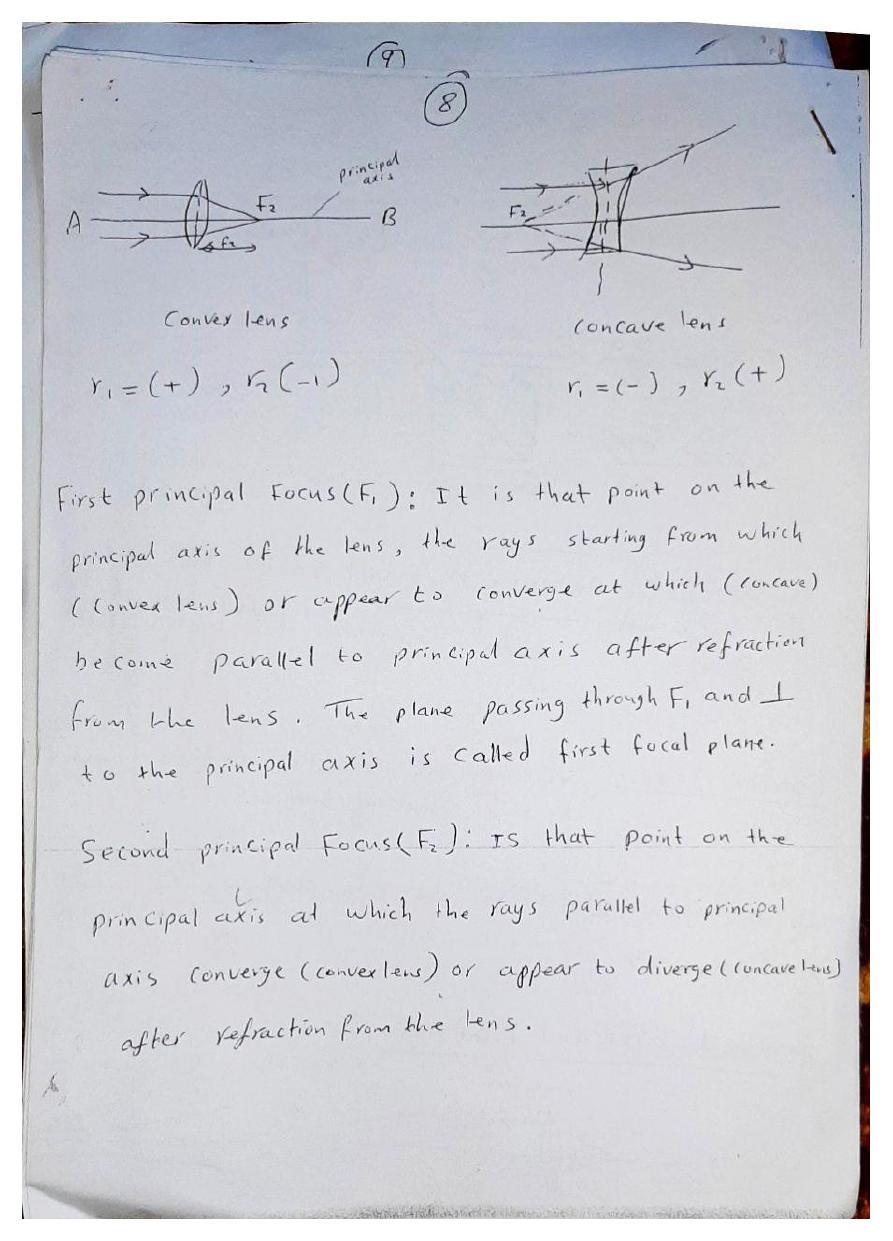 9
8
principal
axis
A
F₂
B
f₂
F₂
Convex lens
Concave lens
r₁ = (+) , r₂ (-1)
r₁ = (-) , r₂ (+)
First principal Focus (F₁) : It is that point on the
principal axis of the lens, the rays starting from which
(Convex lens) or appear to converge at which (concave)
become parallel to principal axis after refraction
from the lens. The plane passing through F₁ and ⊥
to the principal axis is called first focal plane.
Second principal Focus (F₂) : Is that point on the
principal axis at which the rays parallel to principal
axis converge (convex lens) or appear to diverge (concave lens)
after refraction from the lens.